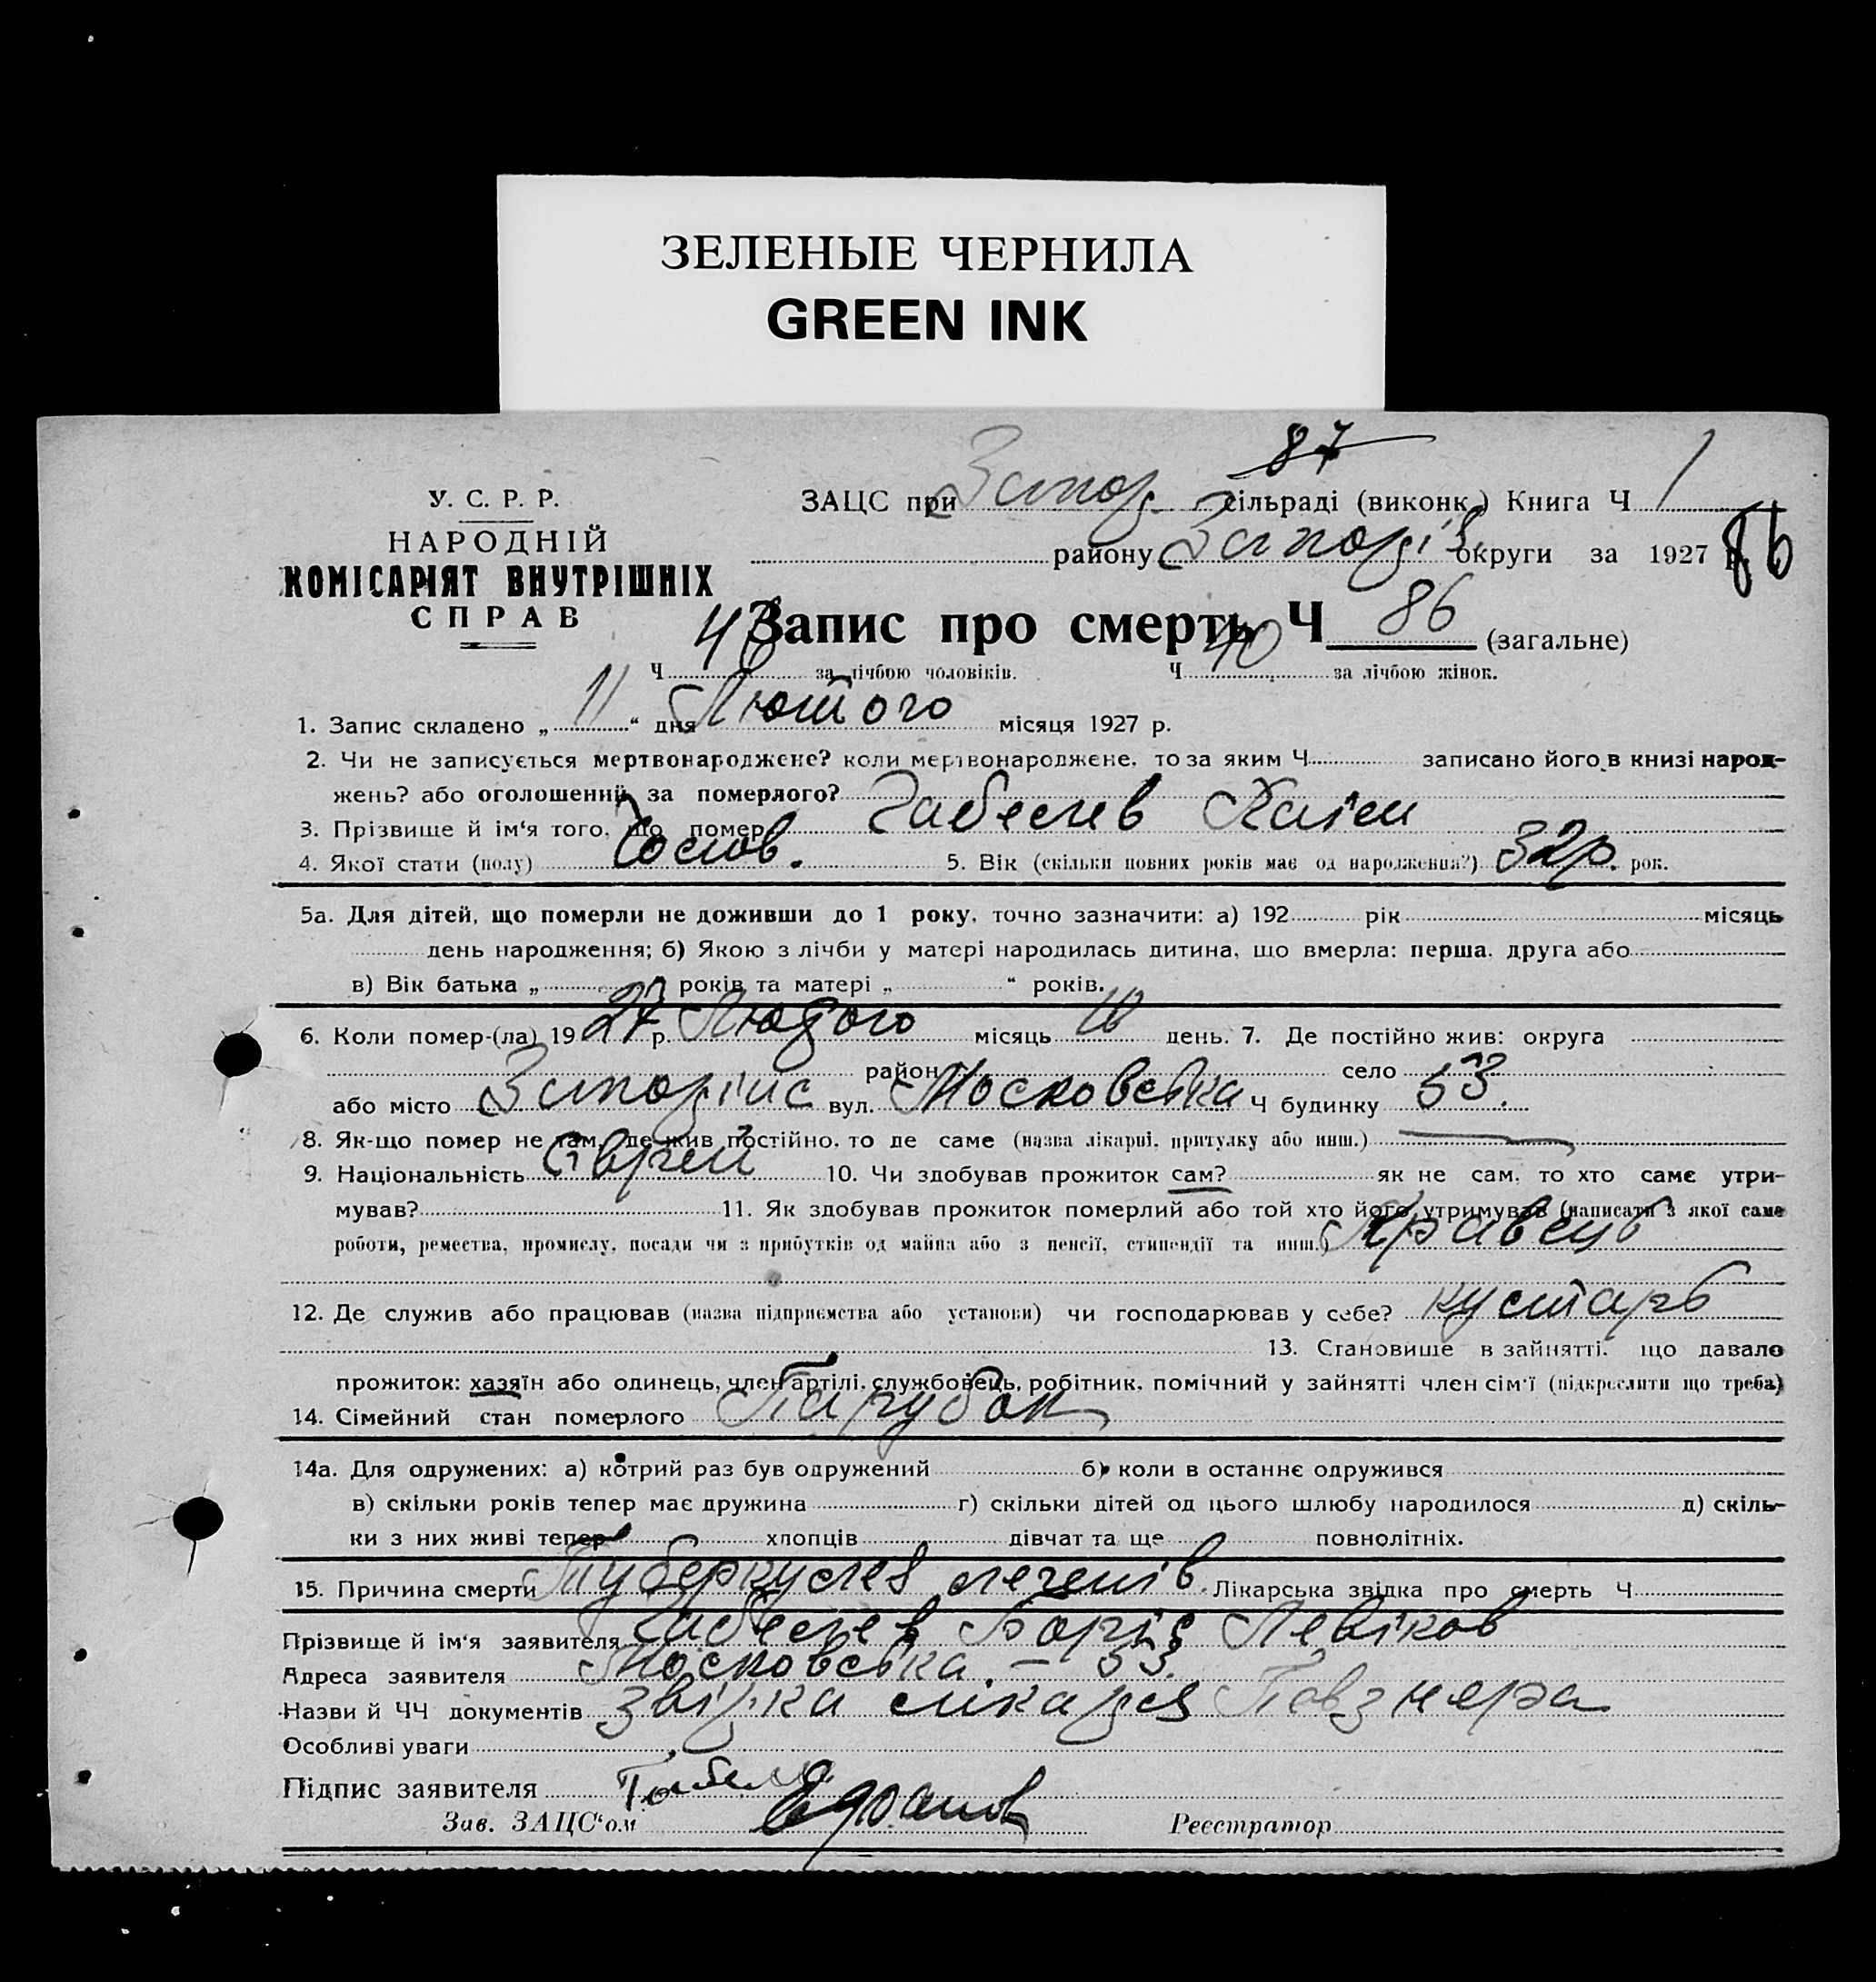 ЗЕЛЕНЫЕ ЧЕРНИЛА
GREEN INK
87
У. С. Р. Р.
НАРОДНІЙ
КОМІСАРІЯТ ВНУТРІШНІХ
СПРАВ
ЗАЦС при Запор. сільраді (виконк.) Книга Ч 1
району Запоріз. округи за 1927 р. 86
Запис про смерть Ч 86 (загальне)
Ч 46 за лічбою чоловіків. Ч 40 за лічбою жінок.
1. Запис складено „ 11 “ дня Лютого місяця 1927 р.
2. Чи не записується мертвонароджене? коли мертвонароджене, то за яким Ч записано його в книзі народ-
жень? або оголошений за померлого?
3. Прізвище й ім‘я того, що помер Габелев Хаїм
4. Якої стати (полу) Чолов. 5. Вік (скільки повних років має од народження?) 32р. рок.
5а. Для дітей, що померли не доживши до 1 року, точно зазначити: а) 192 рік місяць
день народження; б) Якою з лічби у матері народилась дитина, що вмерла: перша, друга або
в) Вік батька „ “ років та матері „ “ років.
6. Коли помер-(ла) 1927 р. Лютого місяць 10 день. 7. Де постійно жив: округа
район село
або місто Запоріжє вул. Московська Ч будинку 53.
8. Як-що помер не там, де жив постійно, то де саме (назва лікарні, притулку або инш.)
9. Національність Єврей 10. Чи здобував прожиток сам? як не сам, то хто саме утри-
мував? 11. Як здобував прожиток померлий або той хто його утримував (написати з якої саме
роботи, ремества, промислу, посади чи з прибутків од майна або з пенсії, стипендії та инш.) Кравець
12. Де служив або працював (назва підприємства або установи) чи господарював у себе? кустарь
13. Становище в зайнятті, що давало
прожиток: хазяїн або одинець, член артілі, службовець, робітник, помічний у зайнятті член сім‘ї (підкреслити що треба)
14. Сімейний стан померлого Парубок
14а. Для одружених: а) котрий раз був одружений б) коли в останнє одружився
в) скільки років тепер має дружина г) скільки дітей од цього шлюбу народилося д) скіль-
ки з них живі тепер хлопців дівчат та ще повнолітніх.
15. Причина смерти Туберкулез легенів. Лікарська звідка про смерть Ч
Прізвище й ім‘я заявителя Габелев Боріс Левіков
Адреса заявителя Московська – 53.
Назви й ЧЧ документів звідка лікаря Певзнера
Особливі уваги
Підпис заявителя
Зав. ЗАЦС‘ом
Реєстратор